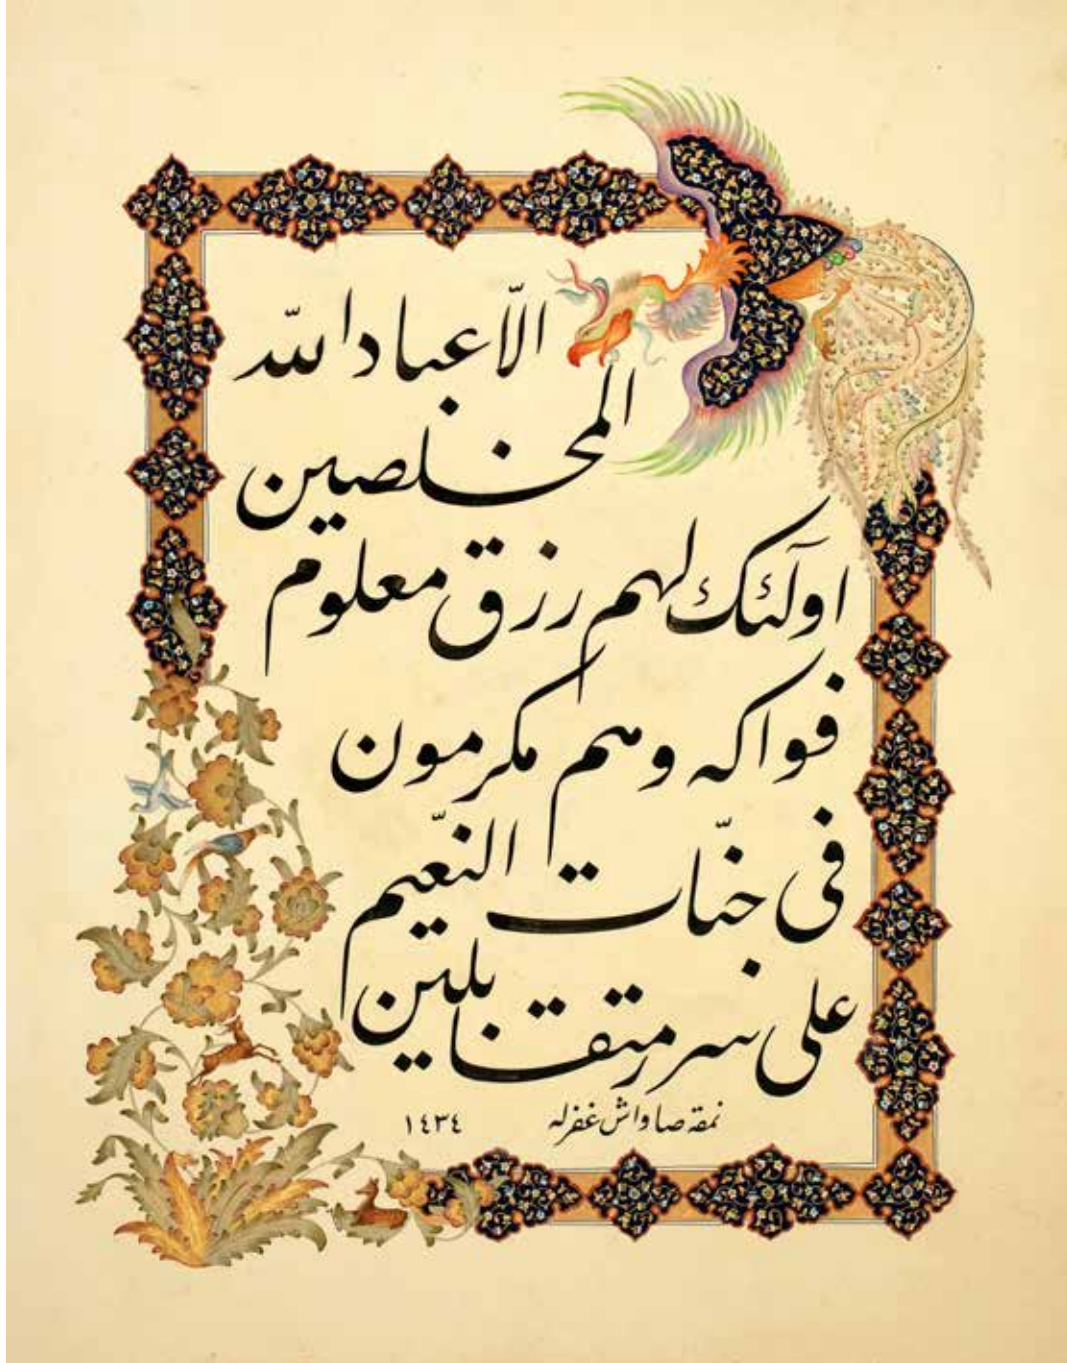 الّا عباد الله
المخلصين
اولٓئك لهم رزق معلوم
فواكه وهم مكرمون
فى جنّات النّعيم
على سرر متقابلين
نمقه صاواش غفرله ١٤٣٤